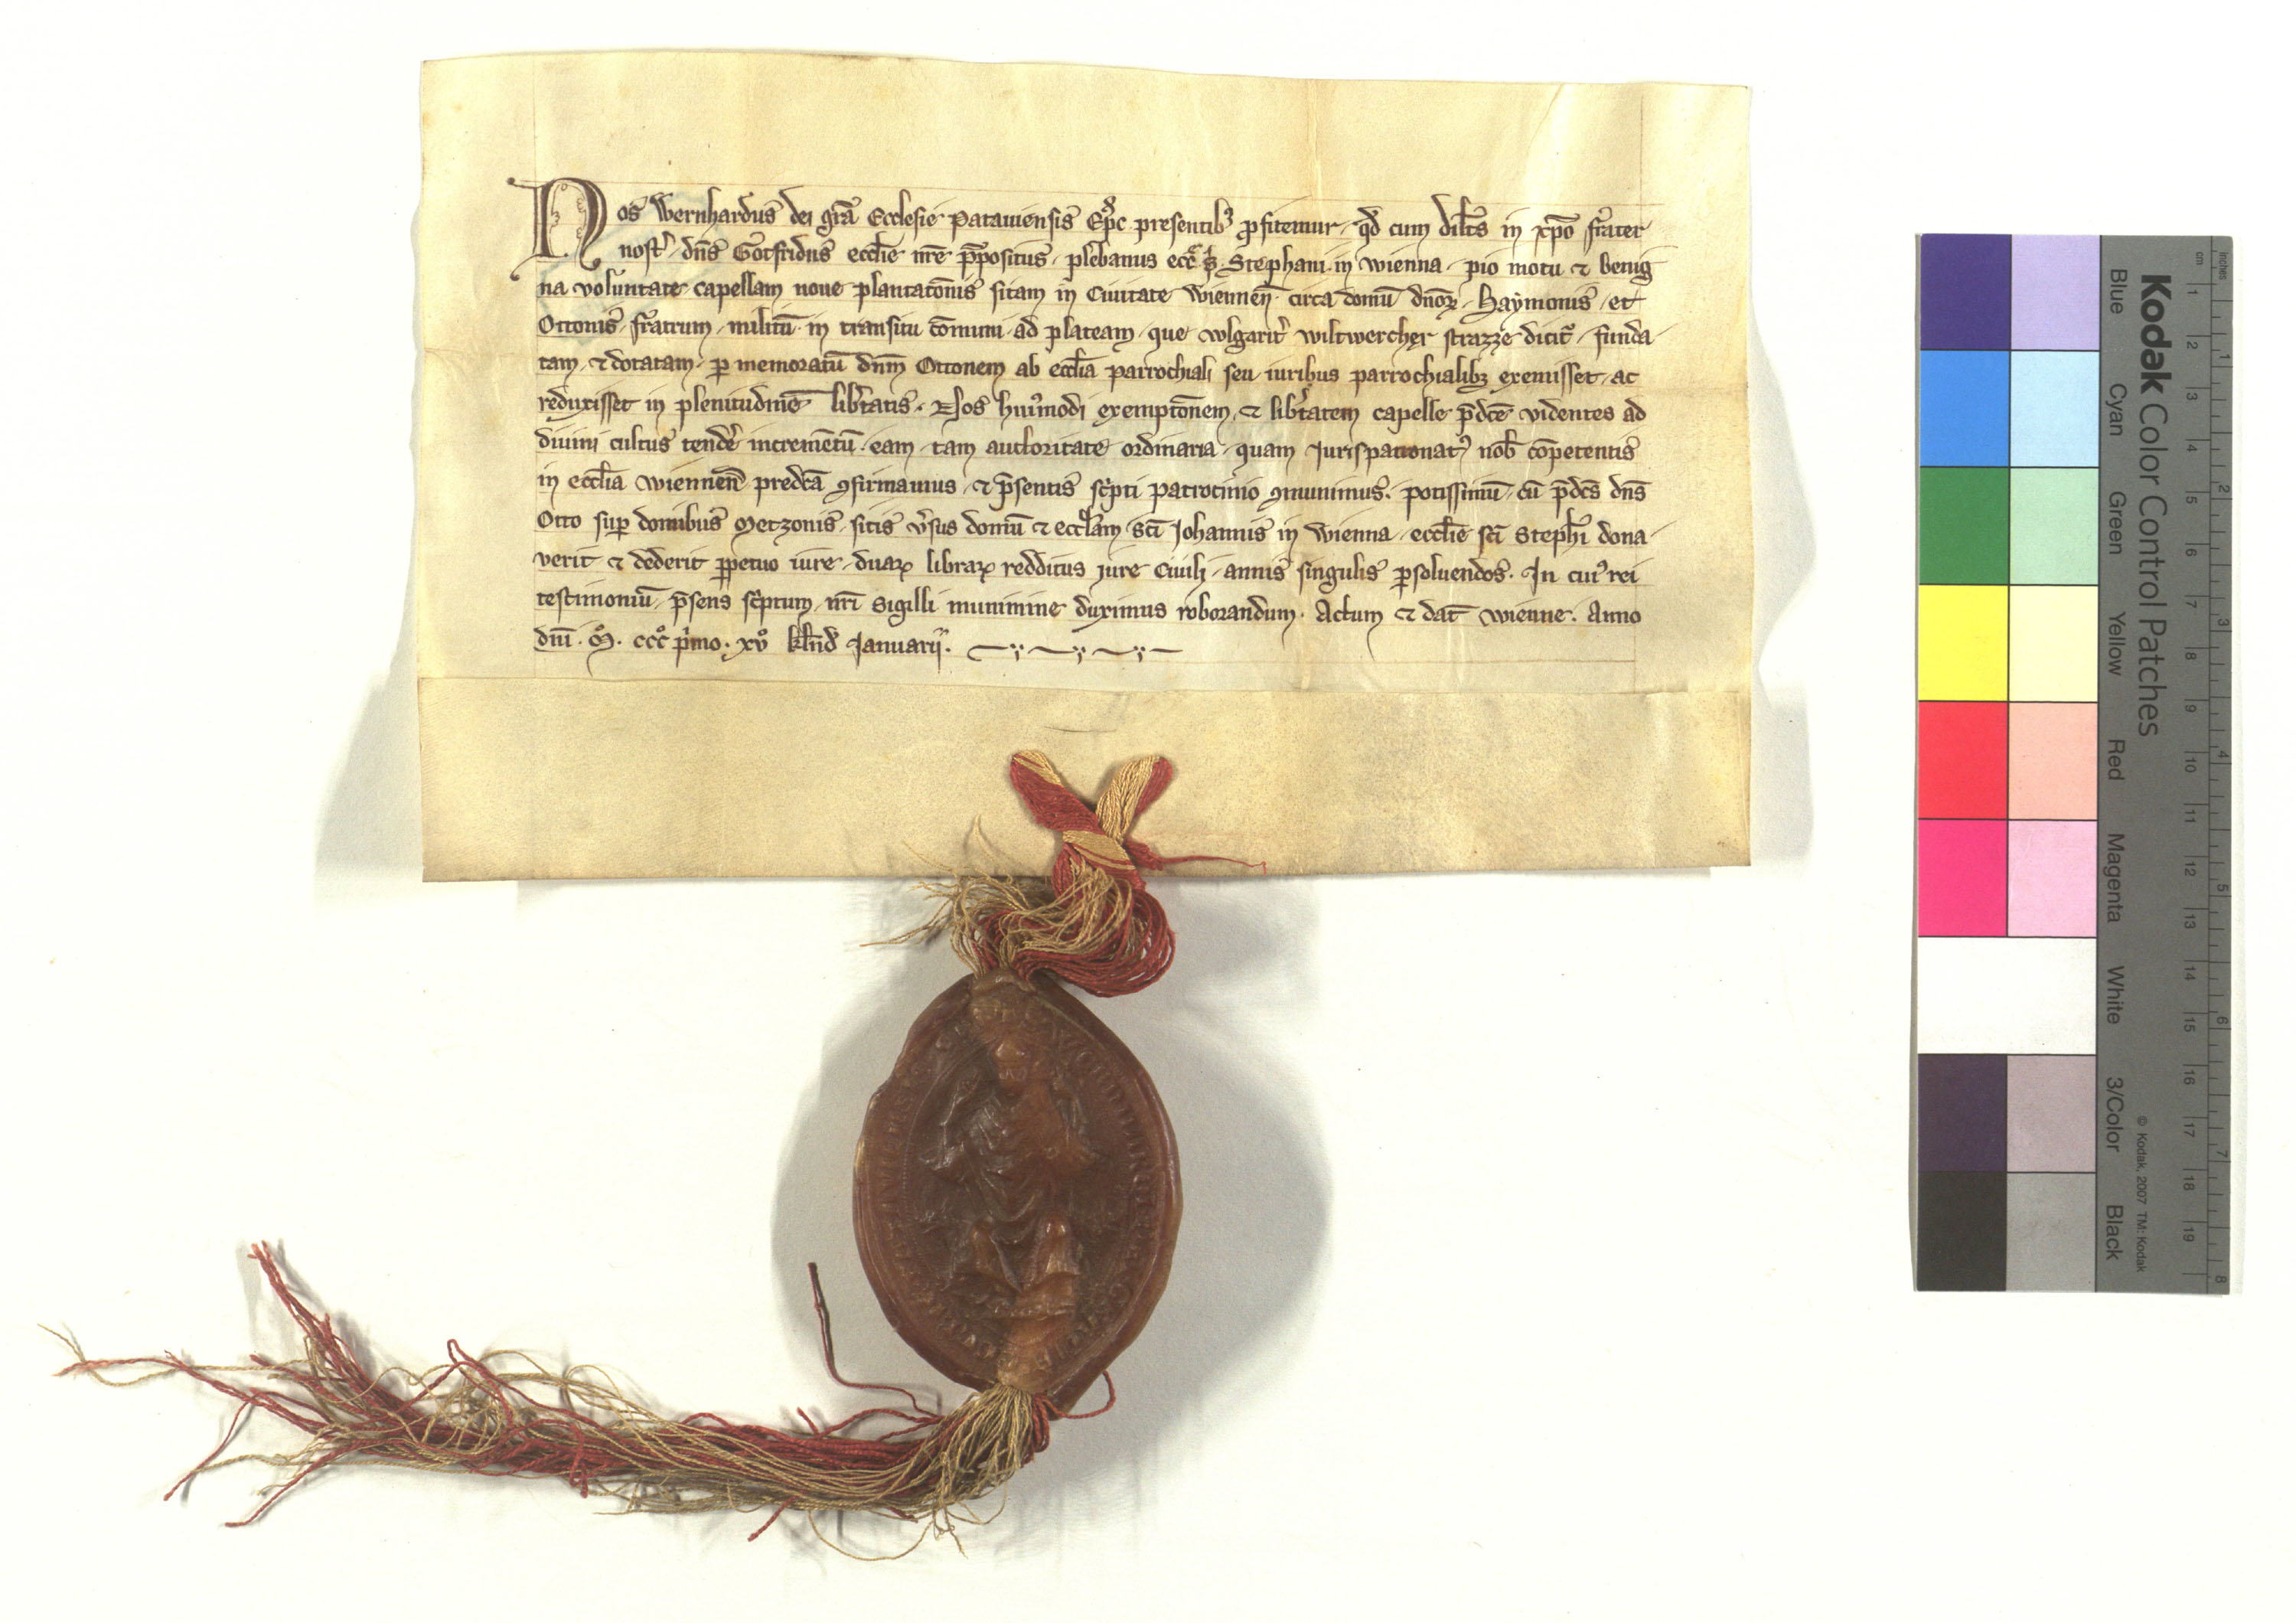 Nos Wernhardus dei grã Ecclesie Patauiensis Ep̃c presentibꝫ ꝓfitemur, qd̃ cum dil̃cs in xp̃o frater
nost̃ dñs Gotfridus ecc̃lie nr̃e p̃positus, plebanus ecc̃ s̃. Stephani in Wienna, pio motu ⁊ benig
na voluntate capellam noue plantatõnis sitam in Ciuitate Wienneñ. circa domũ dñoꝝ, Haymonis, et
Ottonis, fr̃atrum, militũ, in transitu cõmuni, ad plateam, que wlgarit̾ wiltwercher strazze dicit᷑, funda
tam, ⁊ dotatam, ꝑ memoratũ dñm Ottonem ab ecc̃lia parrochiali seu iuribus parrochialibꝫ exemisset, ac
reduxisset in plenitudinẽ lib̾tatis. Nos huiꝰmodi exemptõnem, ⁊ lib̾tatem capelle p̃dc̃e videntes ad
diuini cultus tende᷑ incremẽtũ, eam, tam auctoritate ordinaria, quam Jurispatronatꝰ nob̃ cõpetentis
in ecc̃lia Wienneñ predc̃a ꝯfirmamus, ⁊ p̃sentis sc̾pti patrocinio ꝯmunimus. potissimũ, cũ p̃dc̃s dñs
Otto sup̱ domibus Metzonis, sitis v̾sus domũ ⁊ ecc̃lam sc̃i Johannis in Wienna, ecc̃lie sc̃i Steph̃i dona
verit ⁊ dederit ꝑpetuo iure, duaꝝ libraꝝ redditus jure Ciuili, annis singulis ꝑsoluendos. In cuiꝰ rei
testimoniũ, p̃sens sc̾ptum, nr̃i Sigilli munimine duximus roborandum. Actum ⁊ dat̃ Wienne. Anno
dñi. M̊. ccc̊ p̾mo. xv̊ kl̃nd̾ Januarij.
Kodak Color Control Patches
Blue Cyan Green Yellow Red Magenta White 3/Color Black
© Kodak, 2007 TM: Kodak
cm 1 2 3 4 5 6 7 8 9 10 11 12 13 14 15 16 17 18 19
Inches 1 2 3 4 5 6 7 8